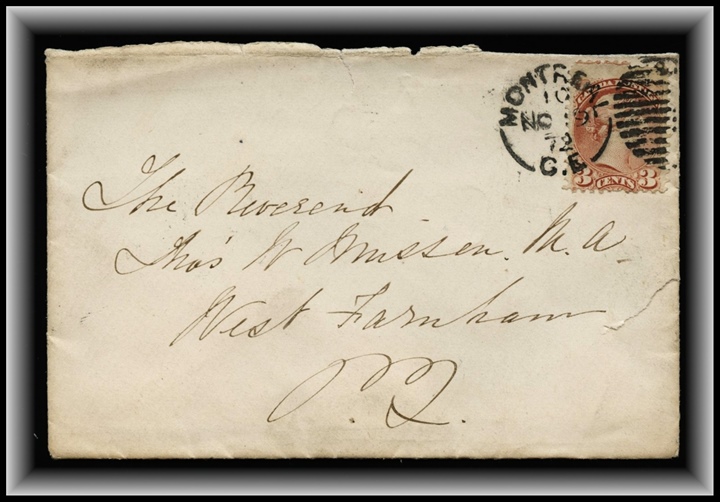 MONTREAL
10
NO 19
72
C.E
3 CENTS 3
The Reverend
Thos W Mussen. M. A
West Farnham
P.Q.